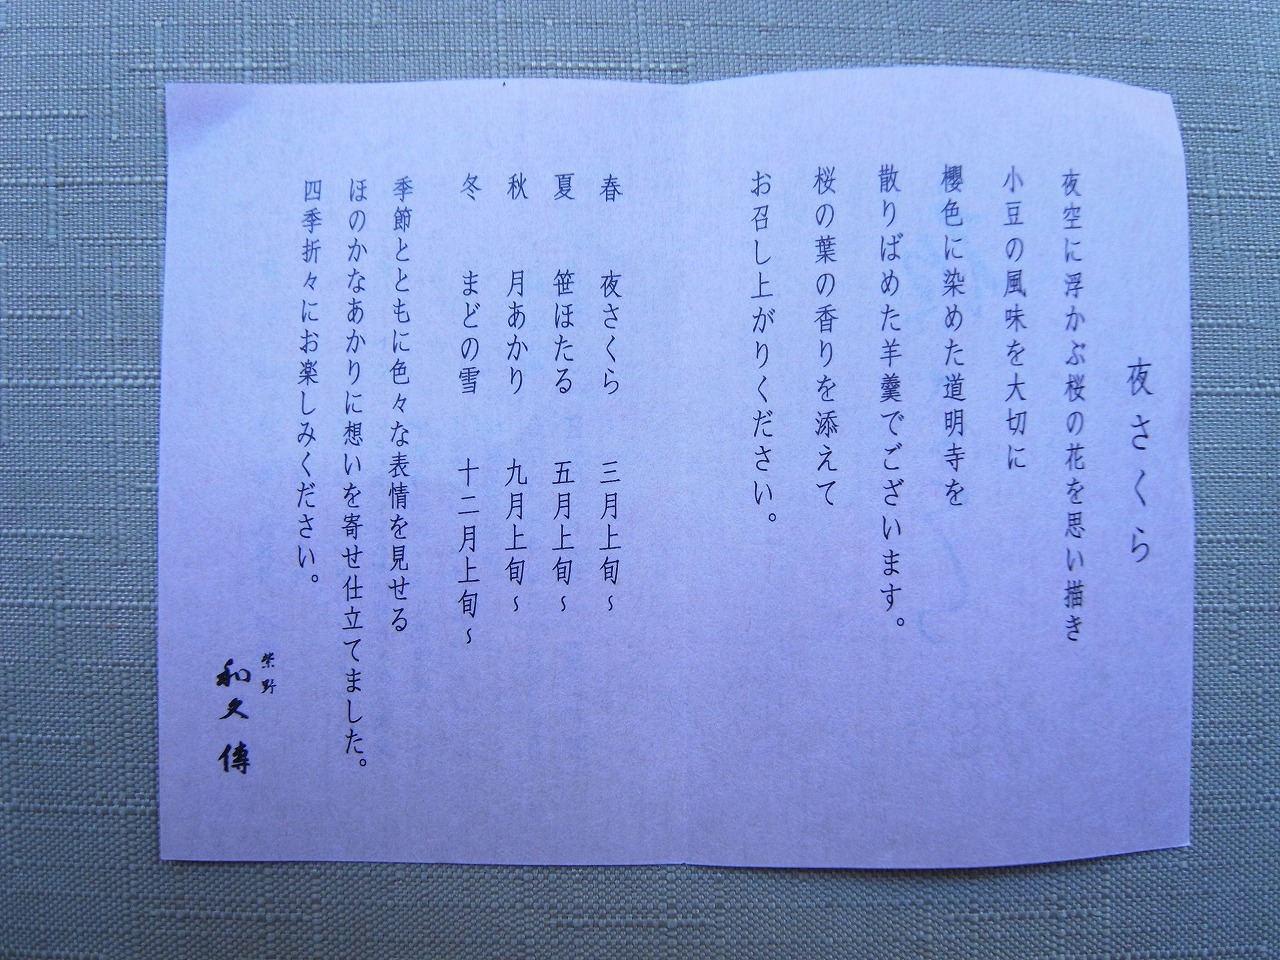 夜さくら
夜空に浮かぶ桜の花を思い描き
小豆の風味を大切に
櫻色に染めた道明寺を
散りばめた羊羹でございます。
桜の葉の香りを添えて
お召し上がりください。
春　夜さくら　三月上旬～
夏　笹ほたる　五月上旬～
秋　月あかり　九月上旬～
冬　まどの雪　十二月上旬～
季節とともに色々な表情を見せる
ほのかなあかりに想いを寄せ仕立てました。
四季折々にお楽しみください。
紫野
和久傳